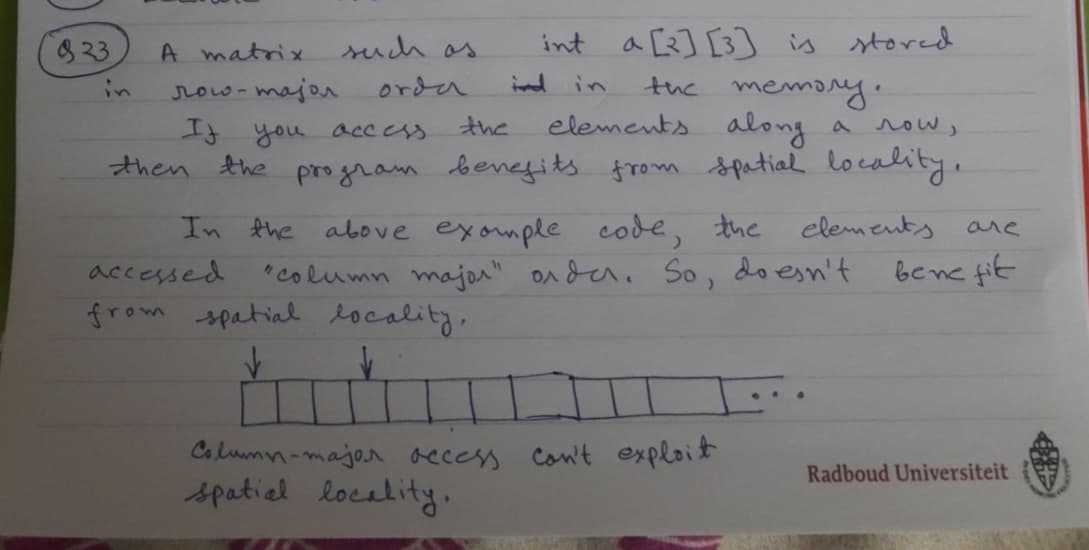 Q23 A matrix such as int a[2][3] is stored
in row-major order in the memory.
If you access the elements along a row,
then the program benefits from spatial locality.
In the above example code, the elements are
accessed "column major" order. So, doesn't benefit
from spatial locality.
...
Column-major access can't exploit
spatial locality.
Radboud Universiteit